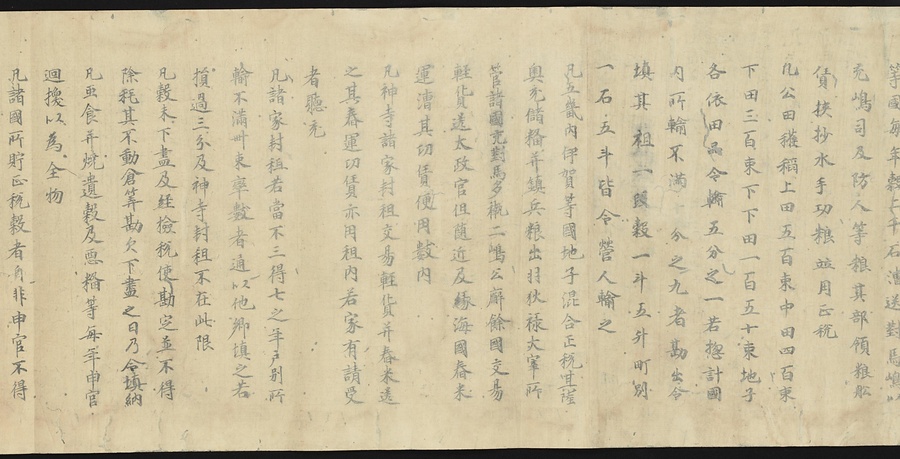 等國毎年穀二千石漕送對馬嶋以
充嶋司及防人等粮其部領粮舩
賃挟抄水手功粮並用正税
凡公田穫稻上田五百束中田四百束
下田三百束下下田一百五十束地子
各依田品令輸五分之一若惣計國
内所輸不満分之九者勘出令
填其租一段穀一斗五升町別
一石五斗皆令營人輸之
凡五畿内伊賀等國地子混合正税其陸
奥充儲糒并鎮兵粮出羽狄禄大宰所
管諸國充對馬多褹二嶋公廨餘國交易
軽貨送太政官但随近及縁海國舂米
運漕其功賃便用數内
凡神寺諸家封租交易軽貨并舂米送
之其舂運功賃亦用租内若家有請受
者聽充
凡諸家封租若當不三得七之年戸別所
輸不満卌束率數者通以他郷填之若
損過三分及神寺封租不在此限
凡穀未下盡及経撿税使勘定並不得
除耗其不動倉筭勘欠下盡之日乃令填納
凡虫食并焼遺穀及悪糒等毎年申官
廻換以為全物
凡諸國所貯正税穀者自非申官不得